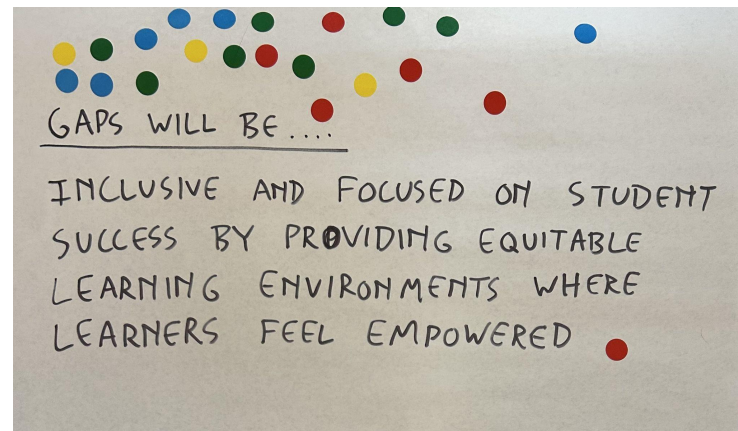 GAPS WILL BE ....
INCLUSIVE AND FOCUSED ON STUDENT
SUCCESS BY PROVIDING EQUITABLE
LEARNING ENVIRONMENTS WHERE
LEARNERS FEEL EMPOWERED